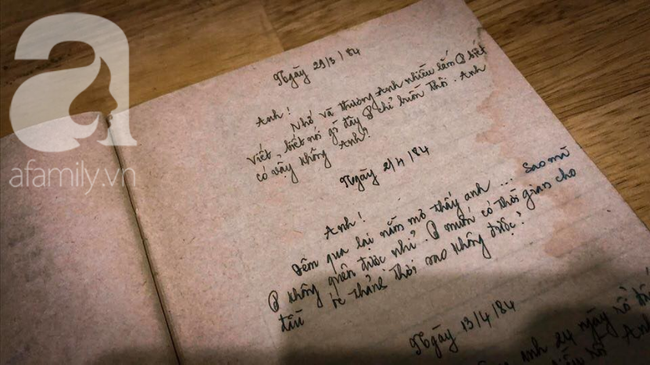 afamily.vn
Ngày 29/3/84
Anh!
Nhớ và thương Anh nhiều lắm biết
viết, biết nói gì đây chỉ buồn thôi. Anh
có vậy không Anh?
Ngày 2/4/84
Anh!
Đêm qua lại nằm mơ thấy anh ... Sao mà
không quên được nhỉ? muốn có thời gian cho
thảnh thơi sao không được?
Ngày 13/4/84
anh 24 ngày rồi
Anh